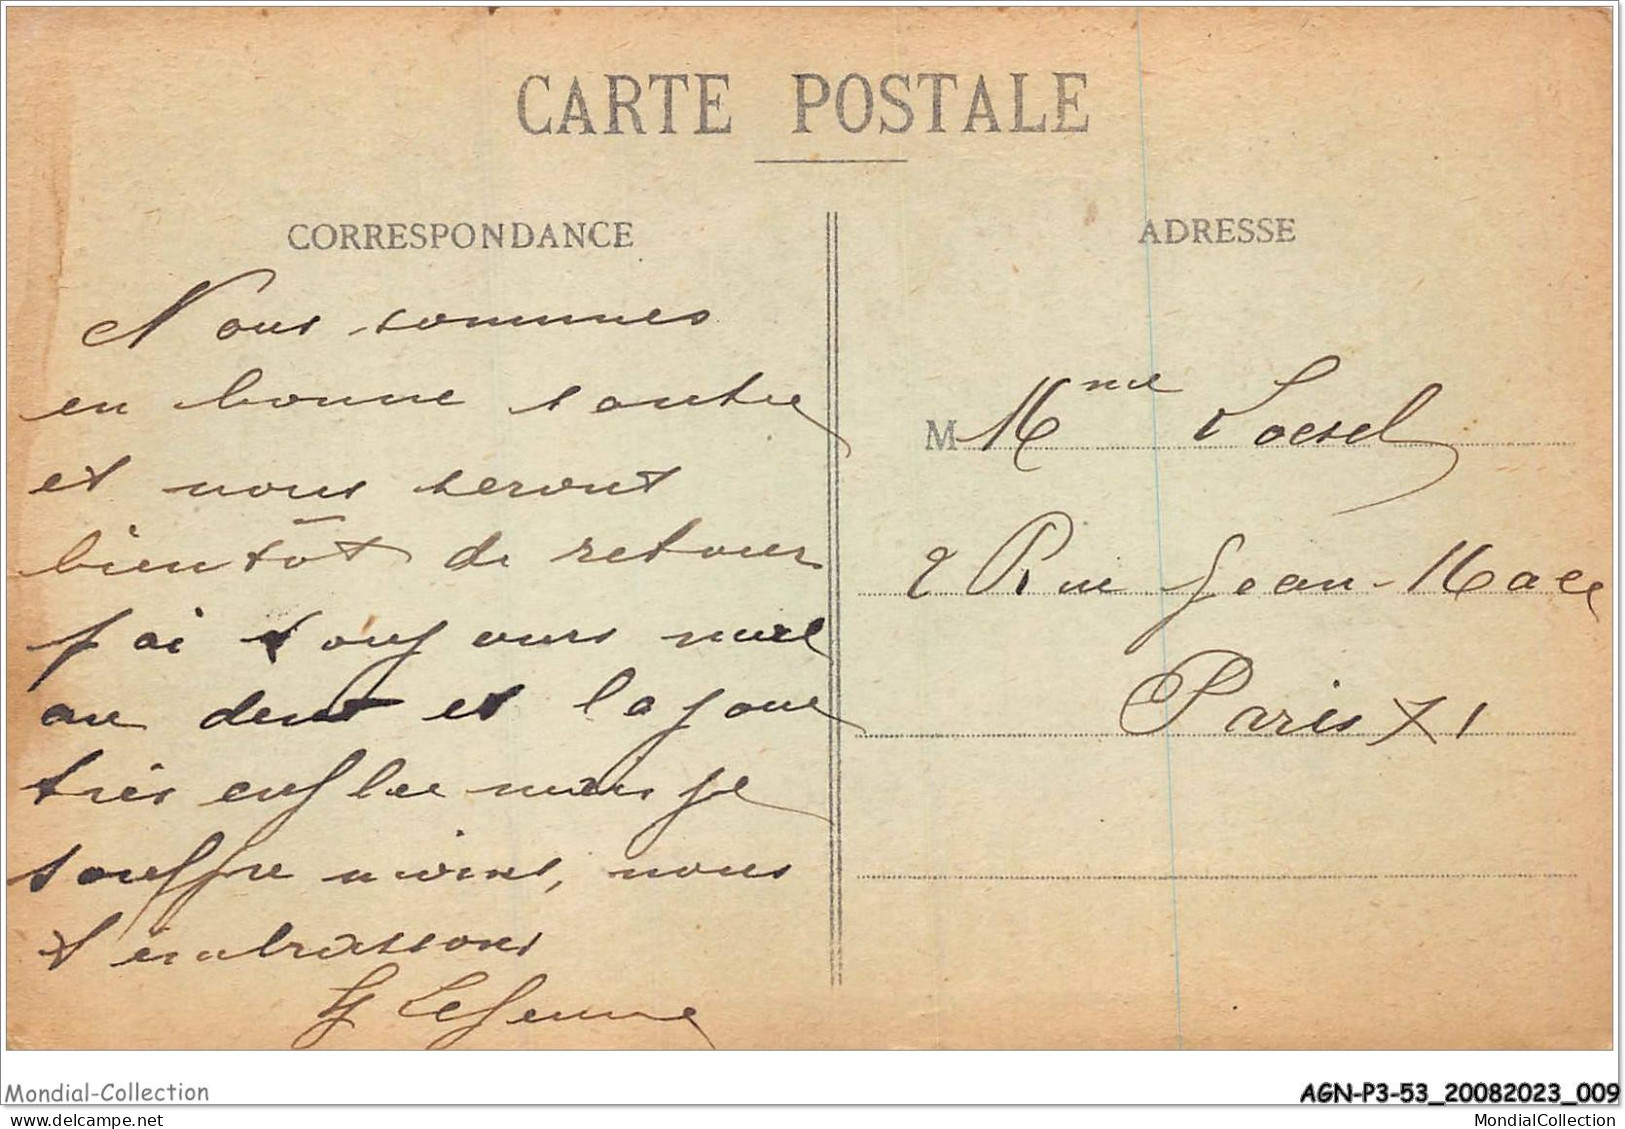 CARTE POSTALE
CORRESPONDANCE
Nous sommes
en bonne santée
et nous seront
bientôt de retour
j'ai toujours mal
au dent et la joue
très enflee mais je
souffre moins, nous
t'embrassons
Lejeune
ADRESSE
M Mme Loesel
2 Rue Jean-Mace
Paris XI
Mondial-Collection
AGN-P3-53_20082023_009
delcampe.net
MondialCollection